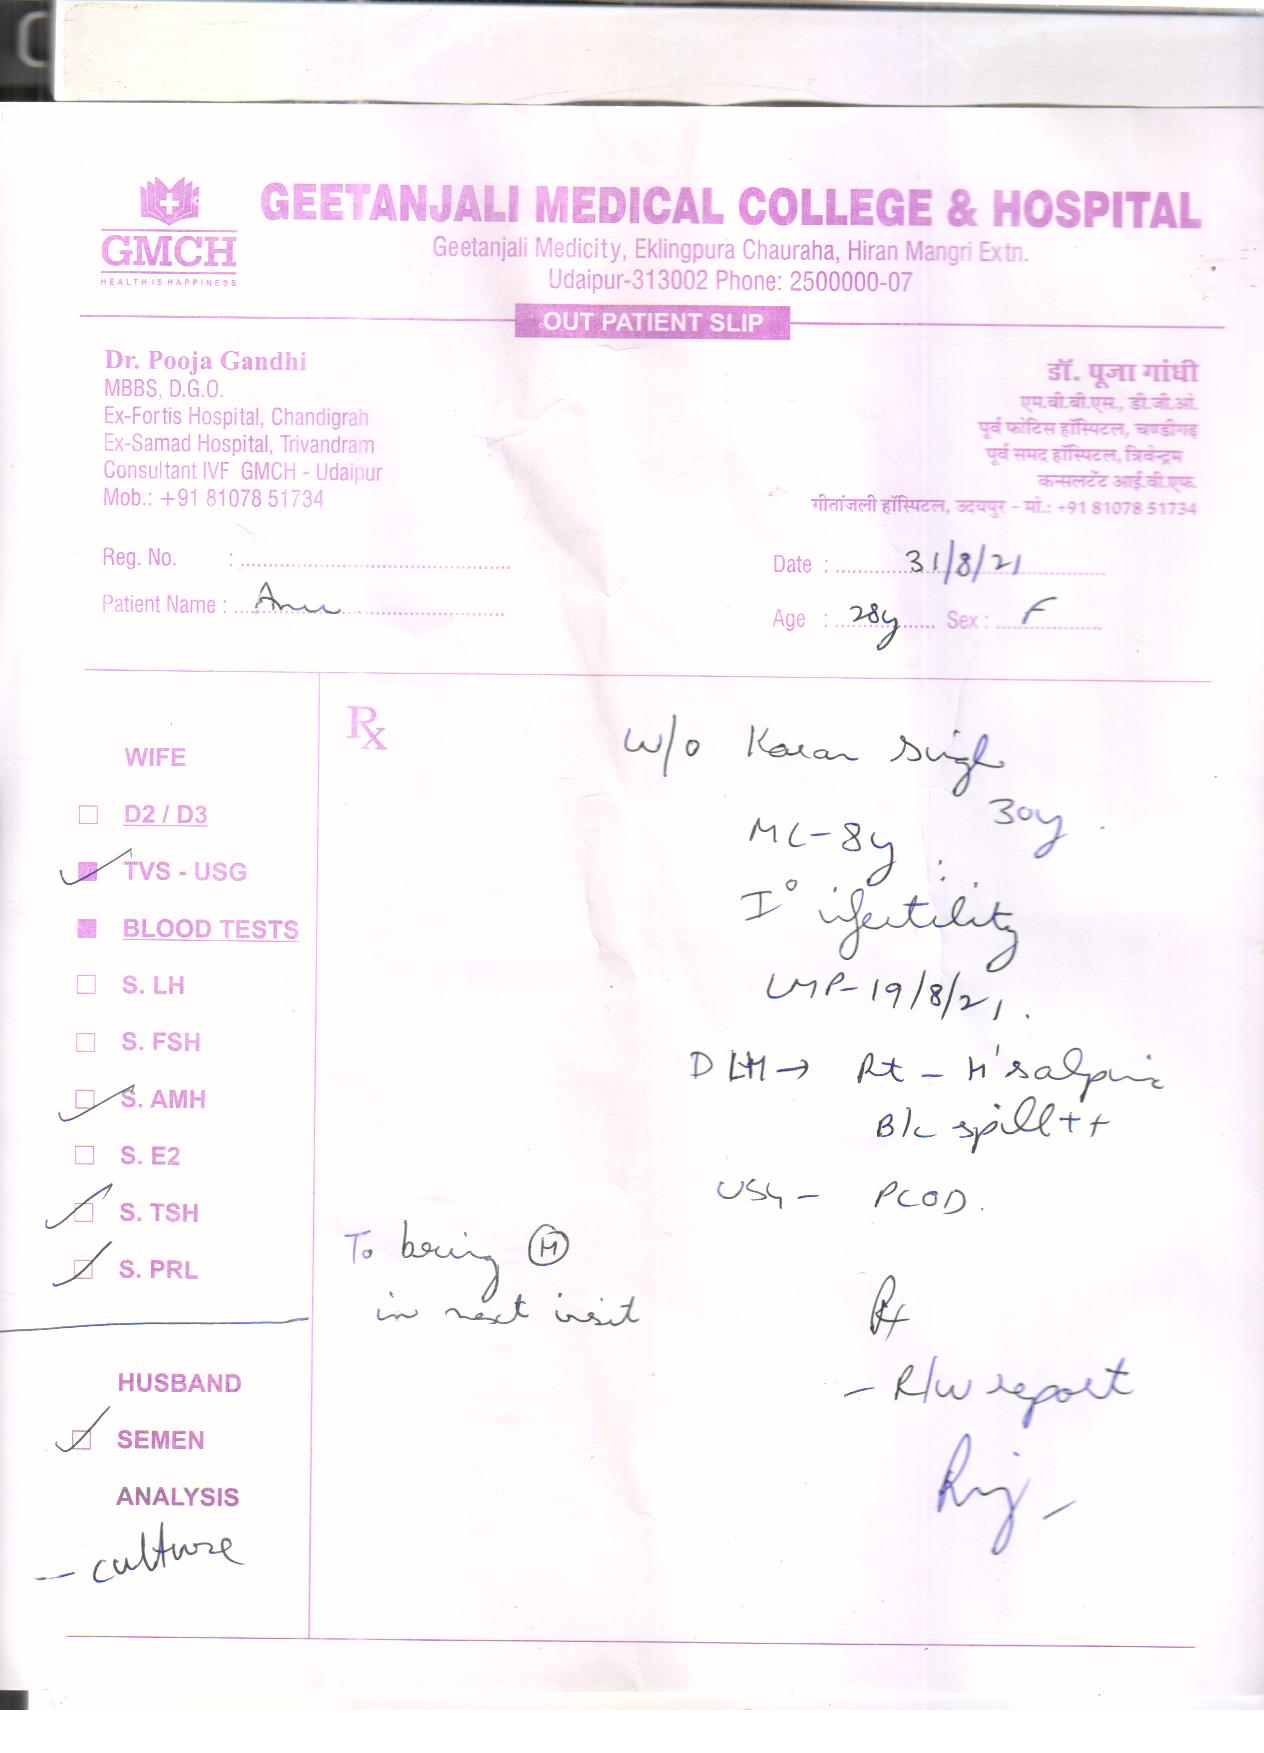 GMCH
HEALTH IS HAPPINESS
GEETANJALI MEDICAL COLLEGE & HOSPITAL
Geetanjali Medicity, Eklingpura Chauraha, Hiran Mangri Extn.
Udaipur-313002 Phone: 2500000-07
OUT PATIENT SLIP
Dr. Pooja Gandhi
MBBS, D.G.O.
Ex-Fortis Hospital, Chandigrah
Ex-Samad Hospital, Trivandram
Consultant IVF GMCH - Udaipur
Mob.: +91 81078 51734
डॉ. पूजा गांधी
एम.बी.बी.एस., डी.जी.ओ.
पूर्व फोर्टिस हॉस्पिटल, चण्डीगढ़
पूर्व समद हॉस्पिटल, त्रिवेन्द्रम
कन्सलटेंट आई.वी.एफ.
गीतांजली हॉस्पिटल, उदयपुर - मो.: +91 81078 51734
Reg. No. :
Date : 31/8/21
Patient Name : Anu
Age : 28y Sex : F
WIFE
D2 / D3
TVS - USG
BLOOD TESTS
S. LH
S. FSH
S. AMH
S. E2
S. TSH
S. PRL
HUSBAND
SEMEN
ANALYSIS
- culture
Rx
W/o Karan Singh
30y
ML-8y
I° infertility
LMP- 19/8/21.
DLH → Rt - H'salpinx
B/L spill++
USG - PCOD.
To bring (H)
in next visit
Rx
- R/w report